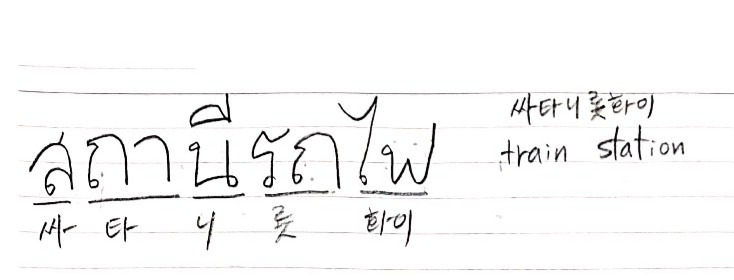 สถานีรถไฟ
싸 타 니 롯 화이
싸타니롯화이
train station